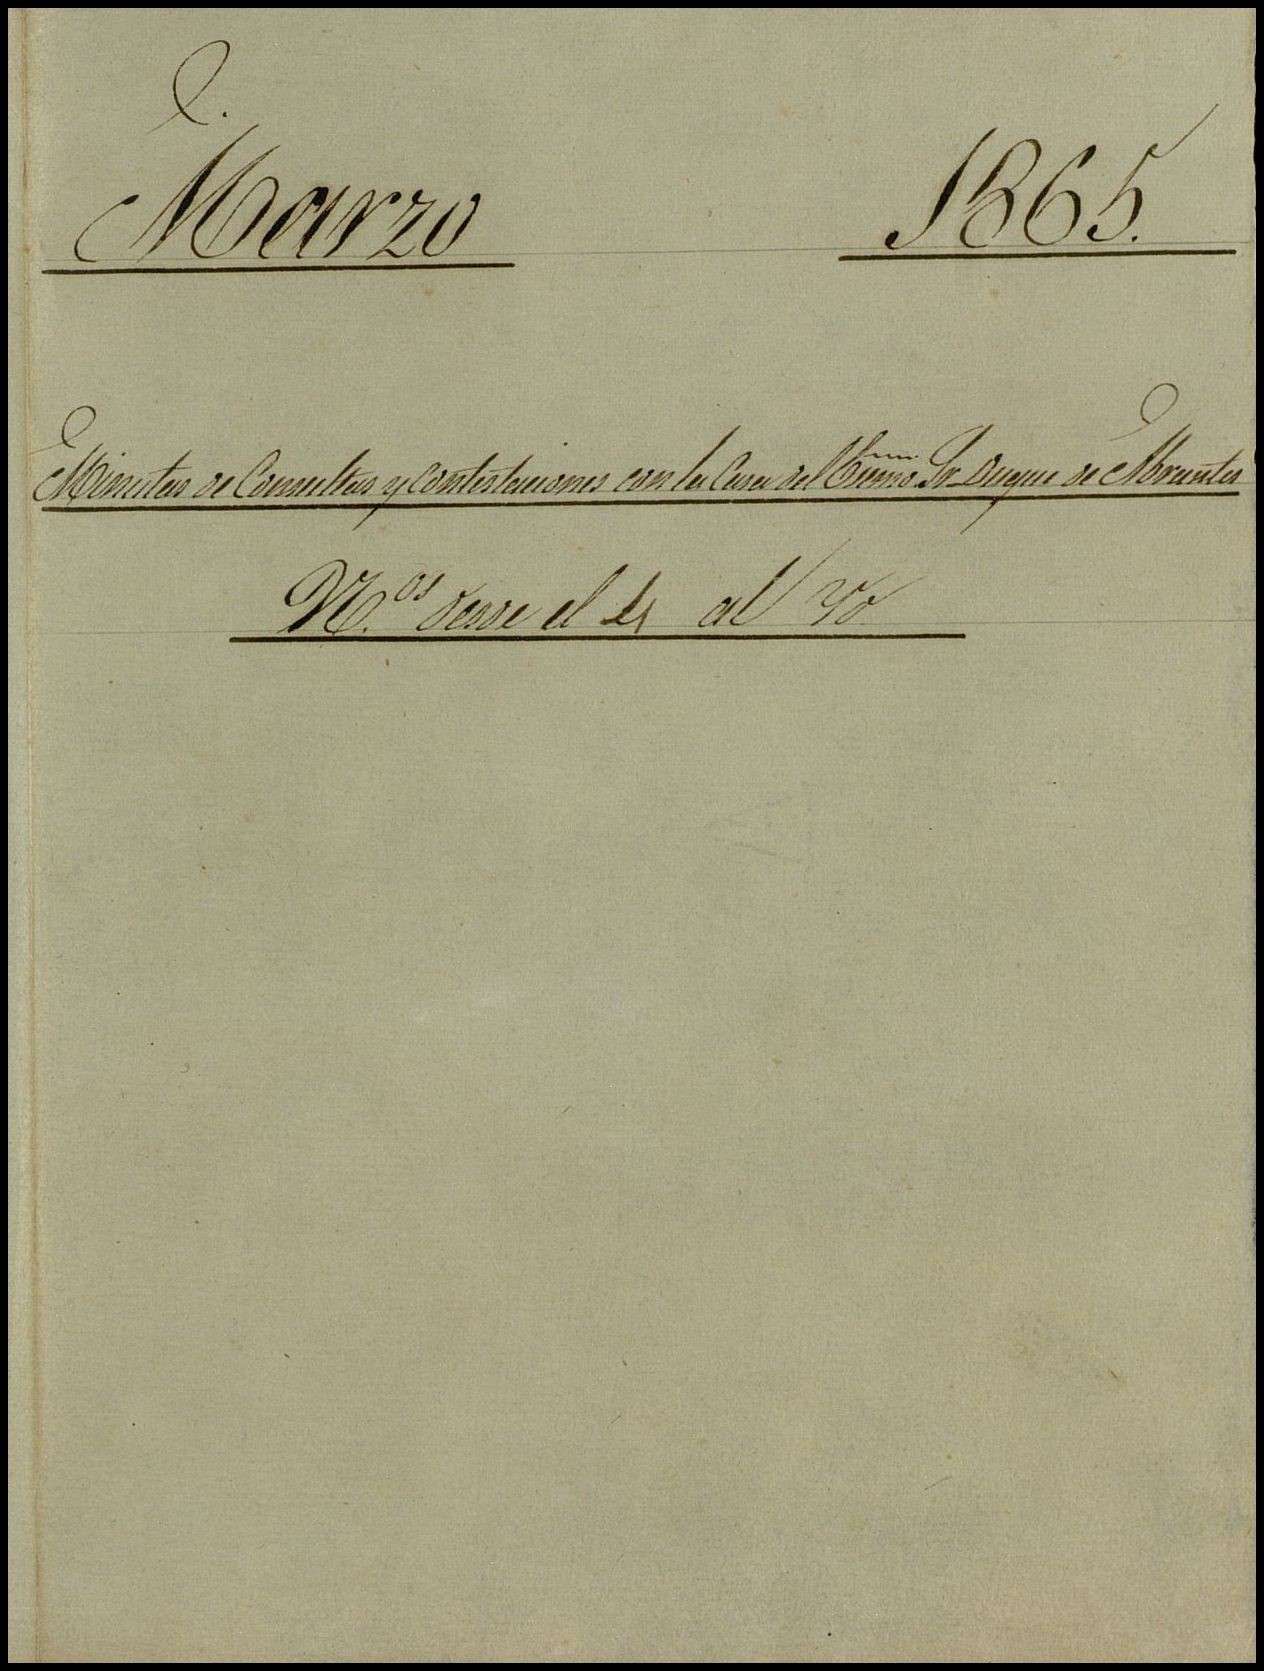 Marzo 1865.
Minutas de Consultas y contestaciones con la Casa del Exmo. Sr. Duque de Abrantes
N.os desde el 4 al